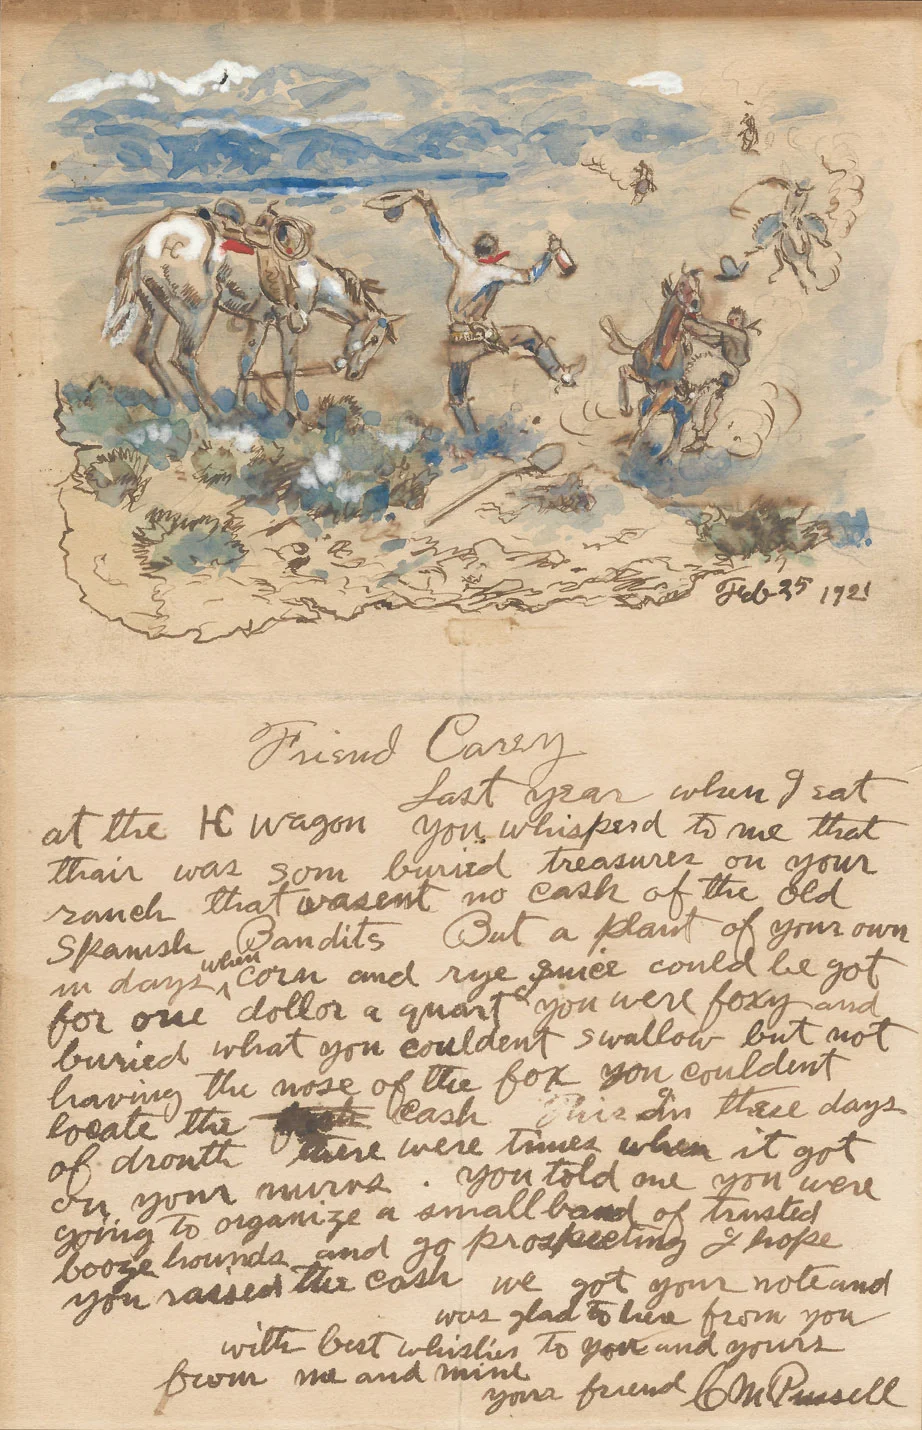 HC
Feb 25 1921
Friend Carey
Last year when I eat
at the HC wagon you whisperd to me that
thair was som buried treasures on your
ranch that wasent no cash of the old
Spanish Bandits But a plant of your own
in days when corn and rye juice could be got
for one dollor a quart you were foxy and
buried what you couldent swallow but not
having the nose of the fox you couldent
locate the cash This In these days
of drouth there were times when it got
on your nurvs . you told me you were
going to organize a small band of trusted
booze hounds and go prospecting I hope
you raised the cash we got your note and
was glad to hear from you
with best whishes to you and yours
from me and mine
your friend CM Russell